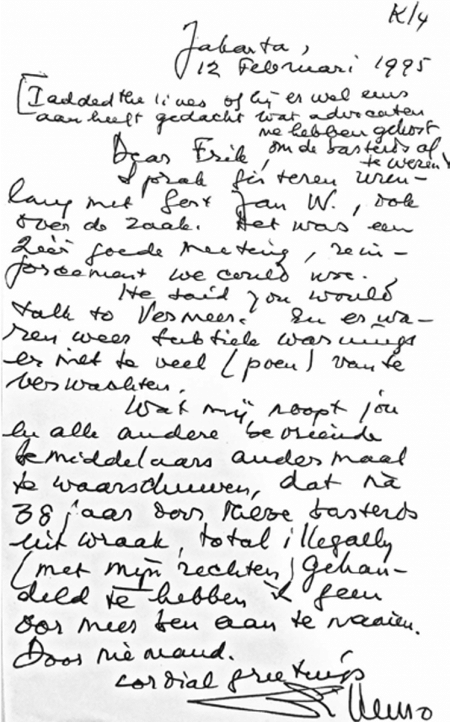 K/4
Jakarta,
12 Februari 1995
[I added the lines of hij er wel eens
aan heeft gedacht wat advocaten
me hebben gekost
Dear Erik, om de basterds af
te weren]
Sprak gisteren uren-
lang met Gert Jan W., ook
over de zaak. Het was een
zéér goede meeting, rein-
forcement we could use.
He said you would
talk to Vermeer. En er wa-
ren weer subtiele warnings
er niet te veel (poen) van te
verwachten.
Wat mij noopt jou
en alle andere bevriende
bemiddelaars andermaal
te waarschuwen, dat na
38 jaar door these basterds
uit wraak, total illegally
(met mijn rechten) gehan-
deld te hebben ik geen
oor meer ben aan te naaien.
Door niemand.
cordial greetings